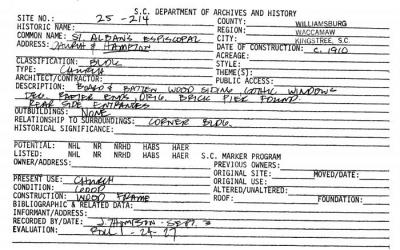 S.C. DEPARTMENT OF ARCHIVES AND HISTORY
SITE NO.: 25-214 COUNTY: WILLIAMSBURG
HISTORIC NAME: REGION: WACCAMAW
COMMON NAME: ST. ALBAN'S ESPISCOPAL CITY: KINGSTREE, S.C.
ADDRESS: & HAMPTON DATE OF CONSTRUCTION: C. 1910
ACREAGE:
CLASSIFICATION: BLDG STYLE:
TYPE: CHURCH THEME(S):
ARCHITECT/CONTRACTOR: PUBLIC ACCESS:
DESCRIPTION: BOARD & BATTEN WOOD SIDING, GOTHIC WINDOWS
DEC. RAFTER ENDS, ORIG. BRICK PIER FOUND.
REAR SIDE ENTRANCES
OUTBUILDINGS: NONE
RELATIONSHIP TO SURROUNDINGS: CORNER BLDG.
HISTORICAL SIGNIFICANCE:
POTENTIAL: NHL NR NRHD HABS HAER
LISTED: NHL NR NRHD HABS HAER S.C. MARKER PROGRAM
OWNER/ADDRESS: PREVIOUS OWNERS:
ORIGINAL SITE: MOVED/DATE:
PRESENT USE: CHURCH ORIGINAL USE:
CONDITION: GOOD ALTERED/UNALTERED:
CONSTRUCTION: WOOD FRAME ROOF: FOUNDATION:
BIBLIOGRAPHIC & RELATED DATA:
INFORMANT/ADDRESS:
RECORDED BY/DATE: SEPT.
EVALUATION: ROLL 24-27